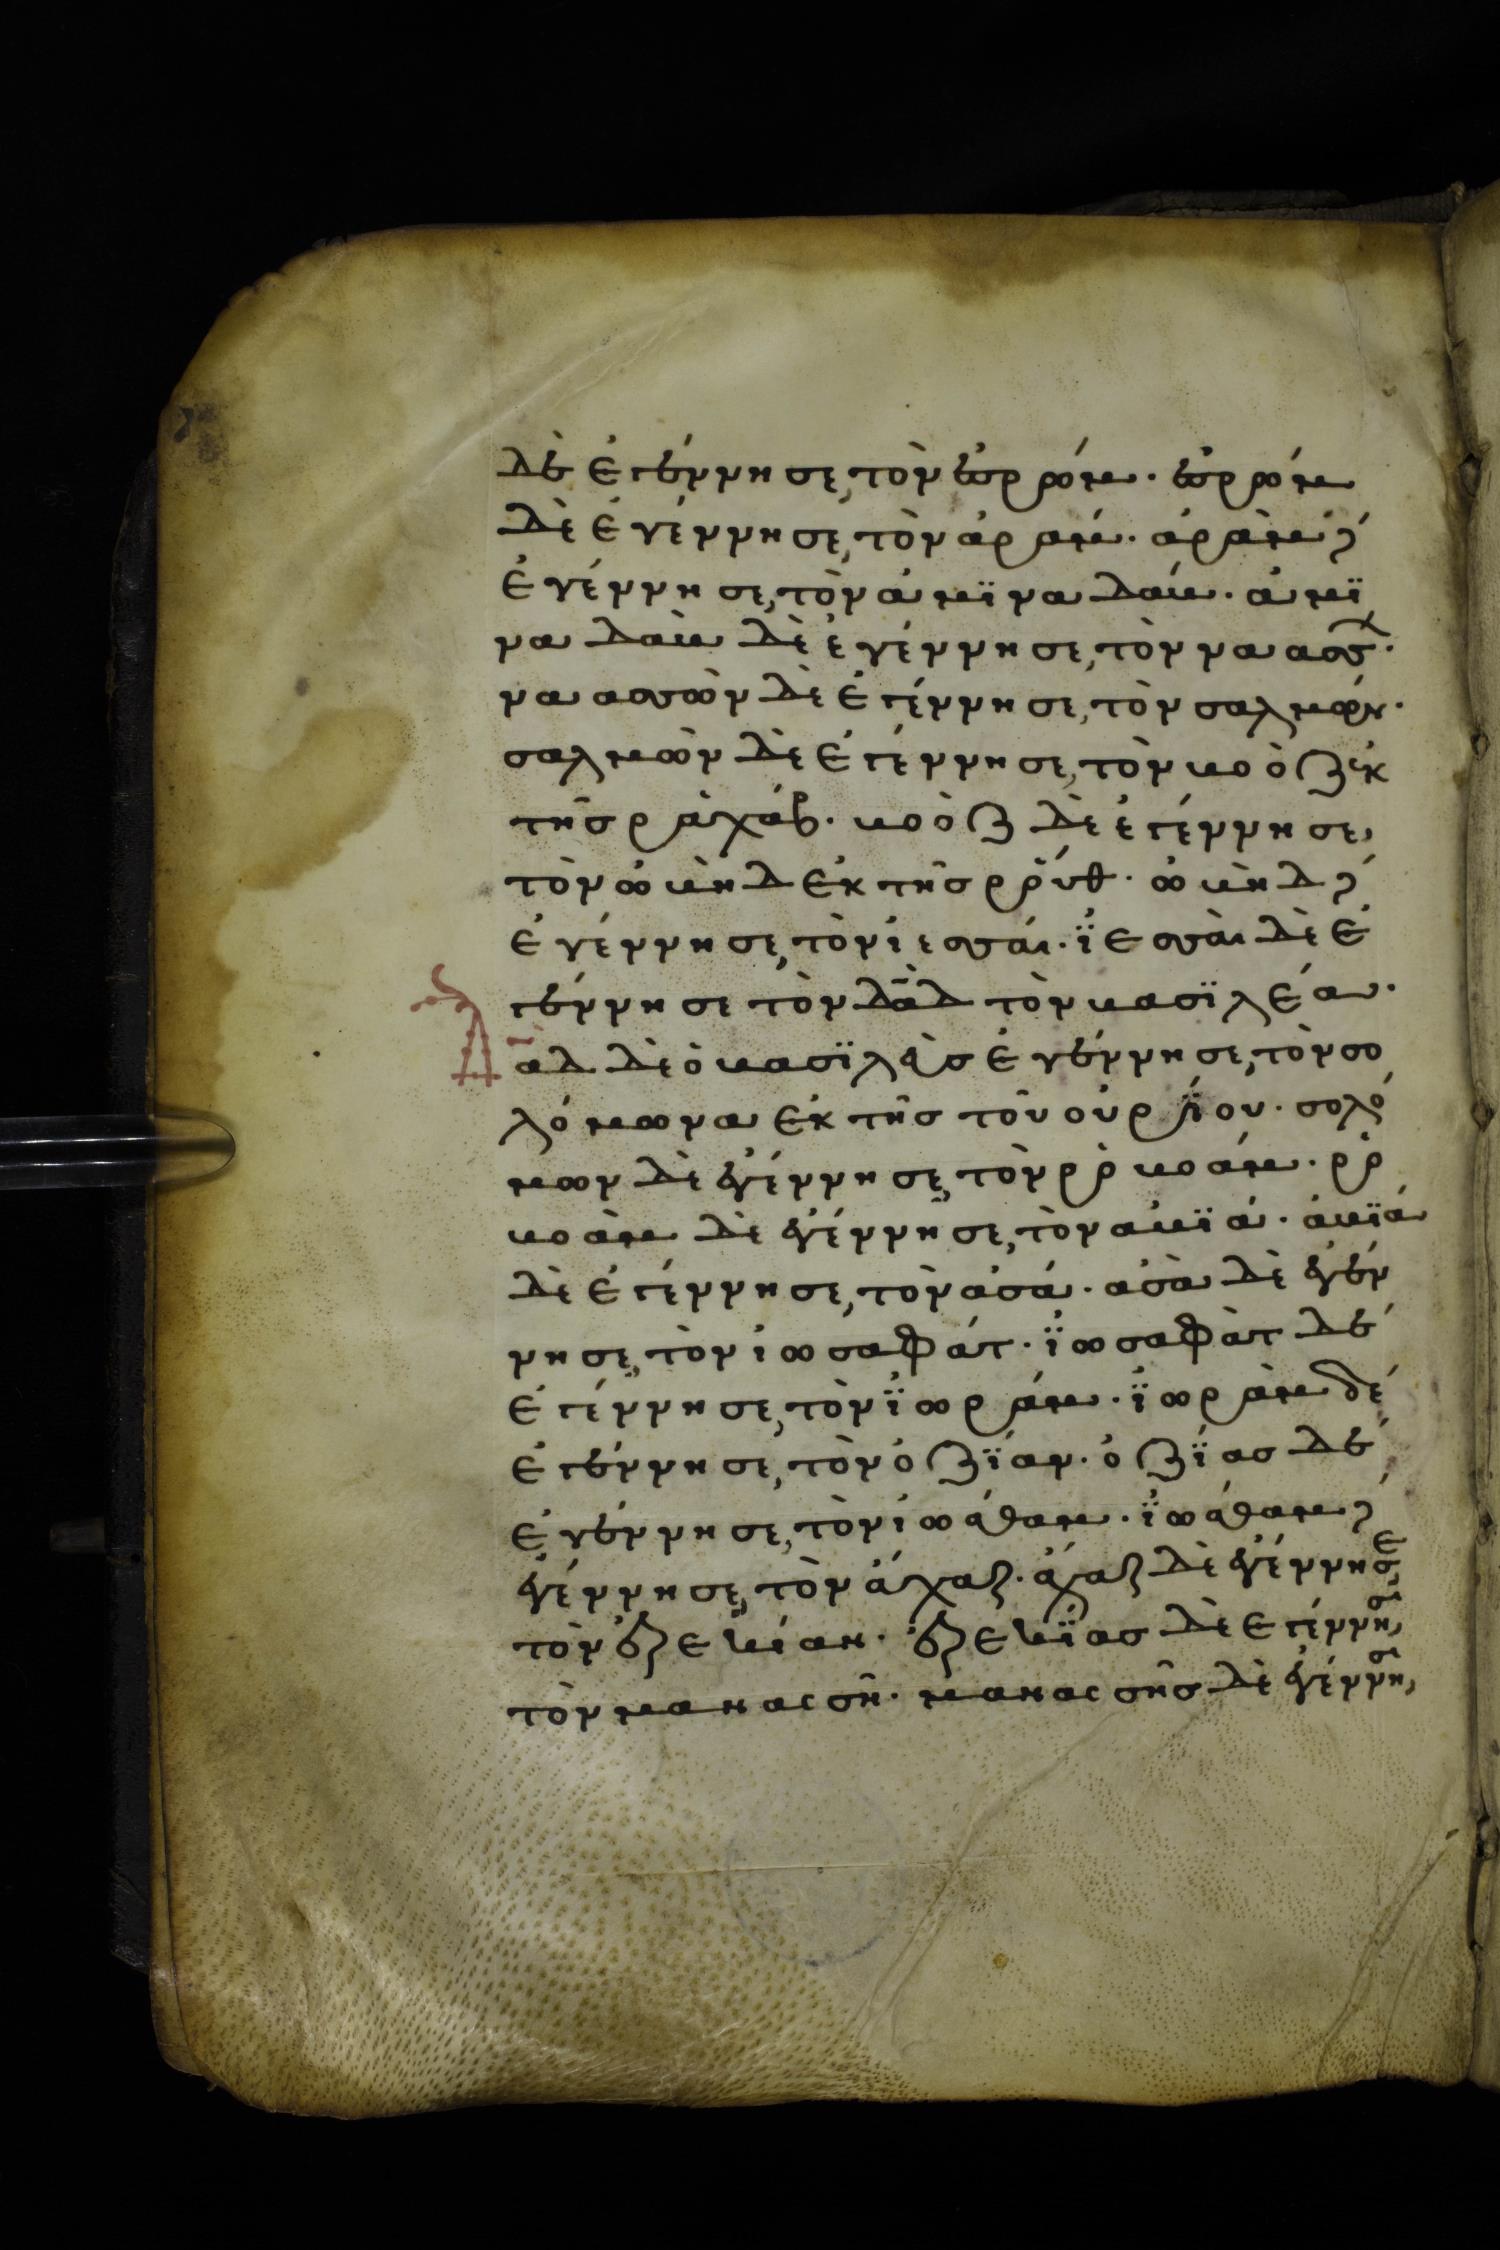 δὲ ἐγέννησε, τὸν ἐσρώμ. ἐσρώμ
δὲ ἐγέννησε, τὸν ἀράμ. ἀρὰμ δ̀
ἐγέννησε, τὸν ἀμϊναδάβ. ἀμϊ
ναδὰβ δὲ ἐγέννησε, τὸν ναασσ̑.
ναασσὼν δὲ ἐγέννησε, τὸν σαλμών.
σαλμὼν δὲ ἐγέννησε, τὸν βοὸζ ἐκ
τῆς ραχάβ. βοὸζ δὲ ἐγέννησε,
τὸν ὠβὴδ ἐκ τῆς ρούθ. ὠβὴδ δ̀
ἐγέννησε, τὸν ἰεσσαί. ἰεσσαὶ δὲ ἐ
γέννησε τὸν δᾱδ τὸν βασϊλέα.
Δᾱδ δὲ ὁ βασϊλεὺς ἐγέννησε, τὸν σο
λόμωνα ἐκ τῆς τοῦ οὐρϊου. σολό
μων δὲ ἐγέννησε, τὸν ροβοάμ. ρο
βοὰμ δὲ ἐγέννησε, τὸν ἀβϊά. ἀβϊά
δὲ ἐγέννησε, τὸν ἀσά. ἀσὰ δὲ ἐγέν
νησε, τὸν ἰωσαφάτ. ἰωσαφὰτ δὲ
ἐγέννησε, τὸν ἰωράμ. ἰωρὰμ δέ
ἐγέννησε, τὸν ὀζϊαν. ὀζϊας δὲ
ἐγέννησε, τὸν ἰωάθαμ. ἰωάθαμ δ̀
ἐγέννησε, τὸν ἄχαζ. ἄχαζ δὲ ἐγέννησε,
τὸν ἐζεκίαν. ἐζεκϊας δὲ ἐγέννησ,
τὸν μανασσῆ. μανασσῆς δὲ ἐγέννησ,